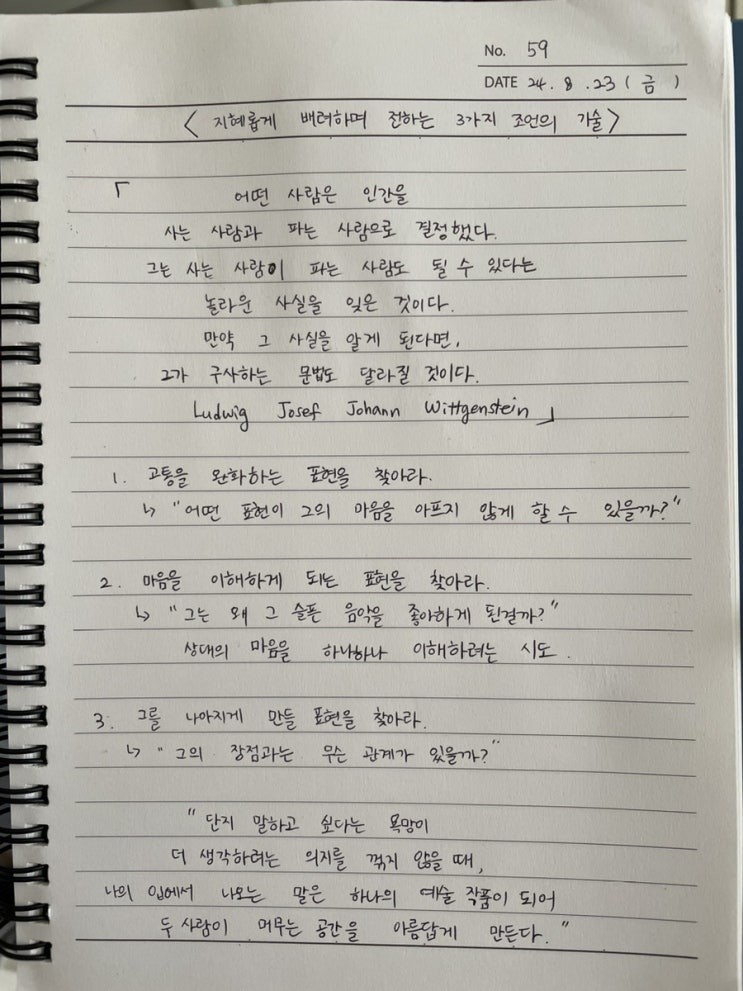 No. 59
DATE 24. 8. 23 ( 금 )
< 지혜롭게 배려하며 전하는 3가지 조언의 기술 >
「 어떤 사람은 인간을
사는 사람과 파는 사람으로 결정했다.
그는 사는 사람이 파는 사람도 될 수 있다는
놀라운 사실을 잊은 것이다.
만약 그 사실을 알게 된다면,
그가 구사하는 문법도 달라질 것이다.
Ludwig Josef Johann Wittgenstein 」
1. 고통을 완화하는 표현을 찾아라.
↳ "어떤 표현이 그의 마음을 아프지 않게 할 수 있을까?"
2. 마음을 이해하게 되는 표현을 찾아라.
↳ "그는 왜 그 슬픈 음악을 좋아하게 된걸까?"
상대의 마음을 하나하나 이해하려는 시도.
3. 그를 나아지게 만들 표현을 찾아라.
↳ "그의 장점과는 무슨 관계가 있을까?"
"단지 말하고 싶다는 욕망이
더 생각하려는 의지를 꺾지 않을 때,
나의 입에서 나오는 말은 하나의 예술 작품이 되어
두 사람이 머무는 공간을 아름답게 만든다."